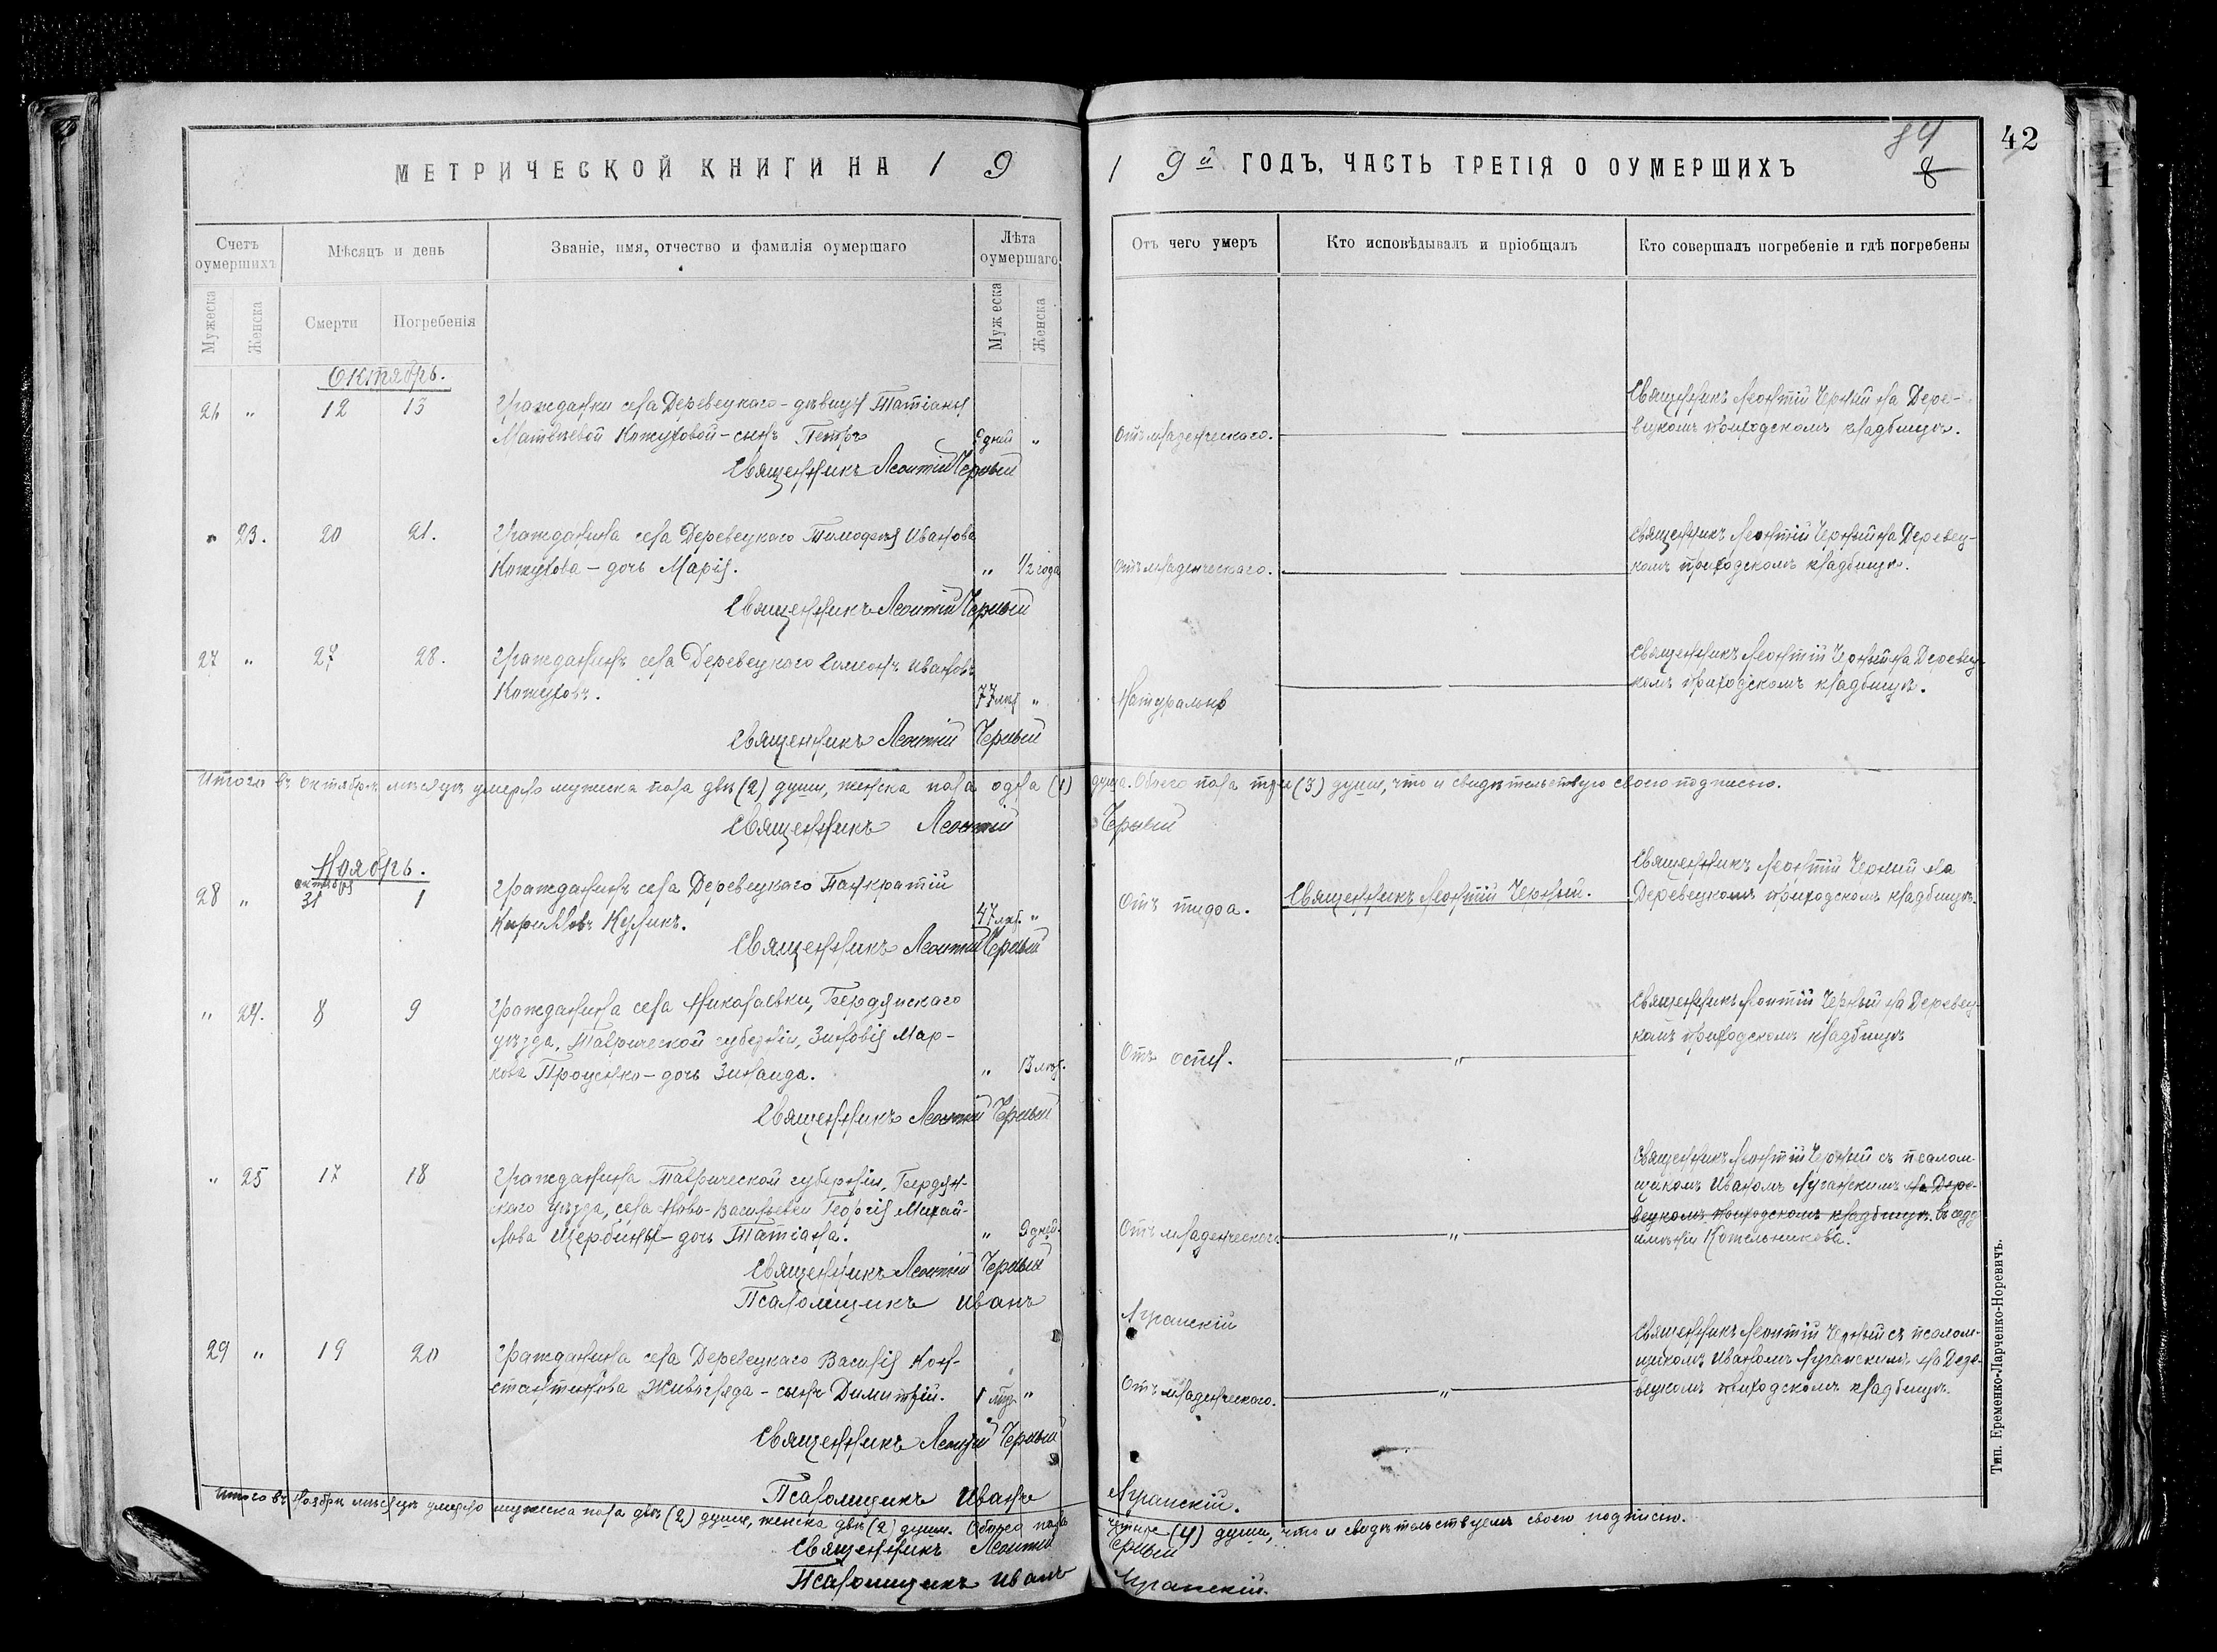 МЕТРИЧЕСКОЙ КНИГИ НА 1 9
Счетъ оумершихъ
Мѣсяцъ и день
Званіе, имя, отчество и фамилія оумершаго
Лѣта оумершаго
Мужеска
Женска
Смерти
Погребенія
Мужеска
Женска
Октябрь.
26 " 12 13 Гражданки села Деревецкаго - дѣвицы Татіаны
Матвѣевой Кожуховой - сынъ Петръ дней "
Священникъ Леонтій Черный
" 23. 20 21. Гражданина села Деревецкаго Тимофея Иванова
Кожухова - дочь Марія. " 1/2 года
Священникъ Леонтій Черный
27 " 27 28. Гражданинъ села Деревецкаго Симеонъ Ивановъ
Кожуховъ. 77 лѣт "
Священникъ Леонтій Черный
Итого въ октябрѣ мѣсяцѣ умерло мужска пола двѣ (2) души, женска пола одна (1)
Священникъ Леонтій
Ноябрь.
октября
28 " 31 1 Гражданинъ села Деревецкаго Панкратій
Кирилловъ Куликъ. 47 лѣт. "
Священникъ Леонтій Черный
" 24. 8 9 Гражданина села Николаевки, Бердянскаго
уѣзда, Таврической губерніи, Зиновія Мар-
кова Проценко - дочь Зинаида. " 13 лѣт.
Священникъ Леонтій Черный
" 25 17 18 Гражданина Таврической губерніи, Бердян-
скаго уѣзда, села Ново-Васильевки Георгія Михай-
лова Щербины - дочь Татіана. " 9 дней.
Священникъ Леонтій Черный
Псаломщикъ Иванъ
29 " 19 20 Гражданина села Деревецкаго Василія Кон-
стантинова - сынъ Димитрій. 1 "
Священникъ Леонтій Черный
Псаломщикъ Иванъ
Итого въ Ноябрѣ мѣсяцѣ умерло мужеска пола двѣ (2) души, женска двѣ (2) души. Обоего пола
Священникъ Леонтій
Псаломщикъ Иванъ
1 9й ГОДЪ, ЧАСТЬ ТРЕТІЯ О ОУМЕРШИХЪ
84
8
42
1
Отъ чего умеръ
Кто исповѣдывалъ и пріобщалъ
Кто совершалъ погребеніе и гдѣ погребены
Священникъ Леонтій Черный на Дере-
Отъ младенческаго. вецкомъ приходскомъ кладбищѣ.
Священникъ Леонтій Черный на Деревец-
Отъ младенческаго. комъ приходскомъ кладбищѣ.
Священникъ Леонтій Черный на Деревец-
Натурально комъ приходскомъ кладбищѣ.
душа. Обоего пола три (3) души, что и свидѣтельствую своею подписью.
Черный
Священникъ Леонтій Черный на
Отъ тифа. Священникъ Леонтій Черный. Деревецкомъ приходскомъ кладбищѣ.
Священникъ Леонтій Черный на Деревец-
комъ приходскомъ кладбищѣ
Отъ оспы. "
Священникъ Леонтій Черный съ псалом-
щикомъ Иваномъ Луганскимъ на Дере-
вецкомъ приходскомъ кладбищѣ. въ саду
Отъ младенческаго " имѣніи Котельникова.
Луганскій
Священникъ Леонтій Черный съ псалом-
щикомъ Иваномъ Луганскимъ на Дере-
Отъ младенческаго. " вецкомъ приходскомъ кладбищѣ.
Луганскій.
четыре (4) души, что и свидѣтельствуемъ своею подписью.
Черный
Луганскій.
Тип. Еременко-Ларченко-Норевичъ.